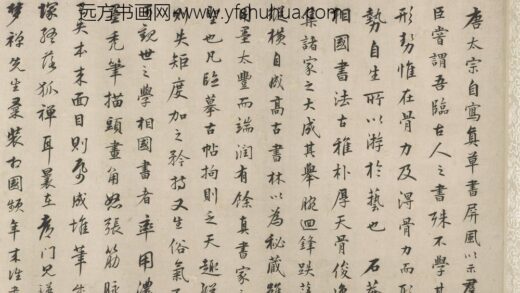 远方书画网 www.yfshuhua.com
唐太宗自寫真草書屏風以示群
臣嘗謂吾臨古人之書殊不學其
形勢惟在骨力及得骨力而形
勢自生所以游於藝也 石菴
相國書法古雅朴厚天骨俊逸
諸家之大成其舉腕迴鋒跌
橫自成高古書林以為秘藏
墨太豐而端潤有餘真書家之
也凡臨摹古帖拘則乏天趣
失矩度加之矜持又生俗氣
觀世之學相國書者率用濃
禿筆描頭畫角努張筋脉
失本來面目則成堆筆
落狐禪耳曩在彥門兄
夢禪先生彙裝相國頻年